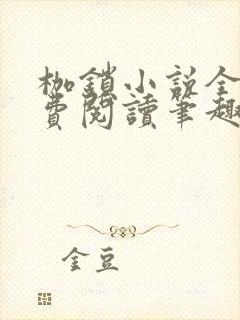 枷鎖小說全
費閱讀筆趣
金豆